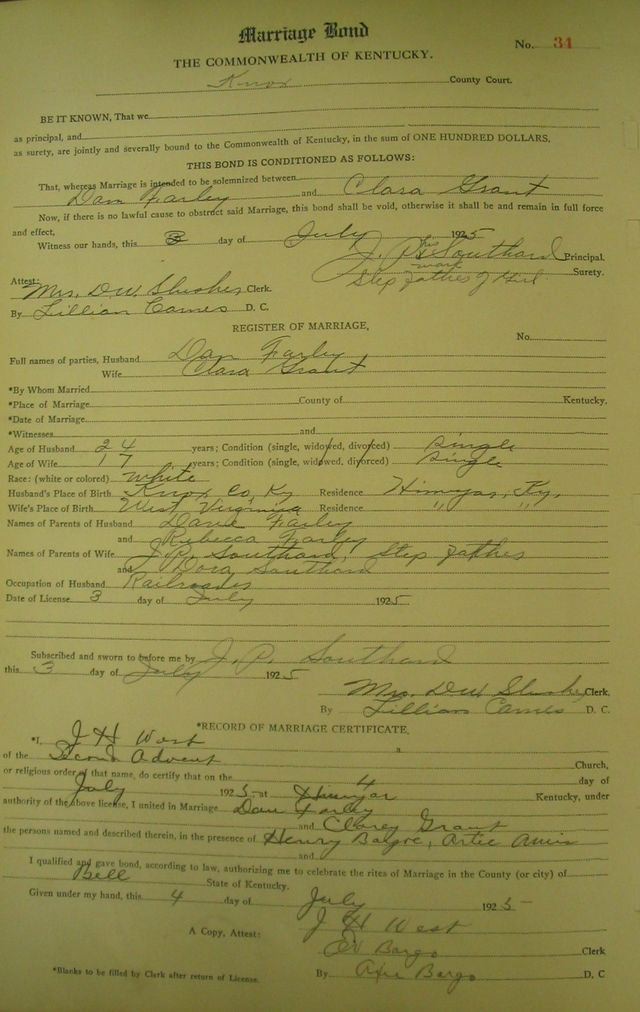 Marriage Bond
No. 34
THE COMMONWEALTH OF KENTUCKY.
Knox County Court.
BE IT KNOWN, That we
as principal, and
as surety, are jointly and severally bound to the Commonwealth of Kentucky, in the sum of ONE HUNDRED DOLLARS.
THIS BOND IS CONDITIONED AS FOLLOWS:
That, whereas Marriage is intended to be solemnized between
Dan Farley and Clara Grant
Now, if there is no lawful cause to obstruct said Marriage, this bond shall be void, otherwise it shall be and remain in full force
and effect,
Witness our hands, this 3 day of July 1925
J. P. his Southard Principal.
mark
Step father of Girl Surety.
Attest:
Mrs. D.W. Slusher Clerk.
By Lillian D. C.
REGISTER OF MARRIAGE,
No.
Full names of parties, Husband Dan Farley
Wife Clara Grant
*By Whom Married
*Place of Marriage County of Kentucky.
*Date of Marriage
*Witnesses and
Age of Husband 24 years; Condition (single, widowed, divorced) single
Age of Wife 17 years; Condition (single, widowed, divorced) single
Race: (white or colored) white
Husband's Place of Birth Knox Co, Ky Residence Himyar, Ky,
Wife's Place of Birth West Virginia Residence " "
Names of Parents of Husband Dave Farley
and Rebecca Farley
Names of Parents of Wife J. P. Southard, Step father
and Dora Southard
Occupation of Husband Railroader
Date of License 3 day of July 1925
Subscribed and sworn to before me by J. P. Southard
this 3 day of July 1925
Mrs. D.W. Slusher Clerk.
By Lillian D. C.
*RECORD OF MARRIAGE CERTIFICATE.
*I, J H West a
of the Second Advent Church,
or religious order of that name, do certify that on the 4 day of
July 1925 at Himyar Kentucky, under
authority of the above license, I united in Marriage Dan Farley
and Clarey Grant
the persons named and described therein, in the presence of Henry Bargo, Artie
and
I qualified and gave bond, according to law, authorizing me to celebrate the rites of Marriage in the County (or city) of
Bell State of Kentucky.
Given under my hand, this 4 day of July 1925
J H West
A Copy, Attest: Bargo Clerk
*Blanks to be filled by Clerk after return of License. By Bargo D. C